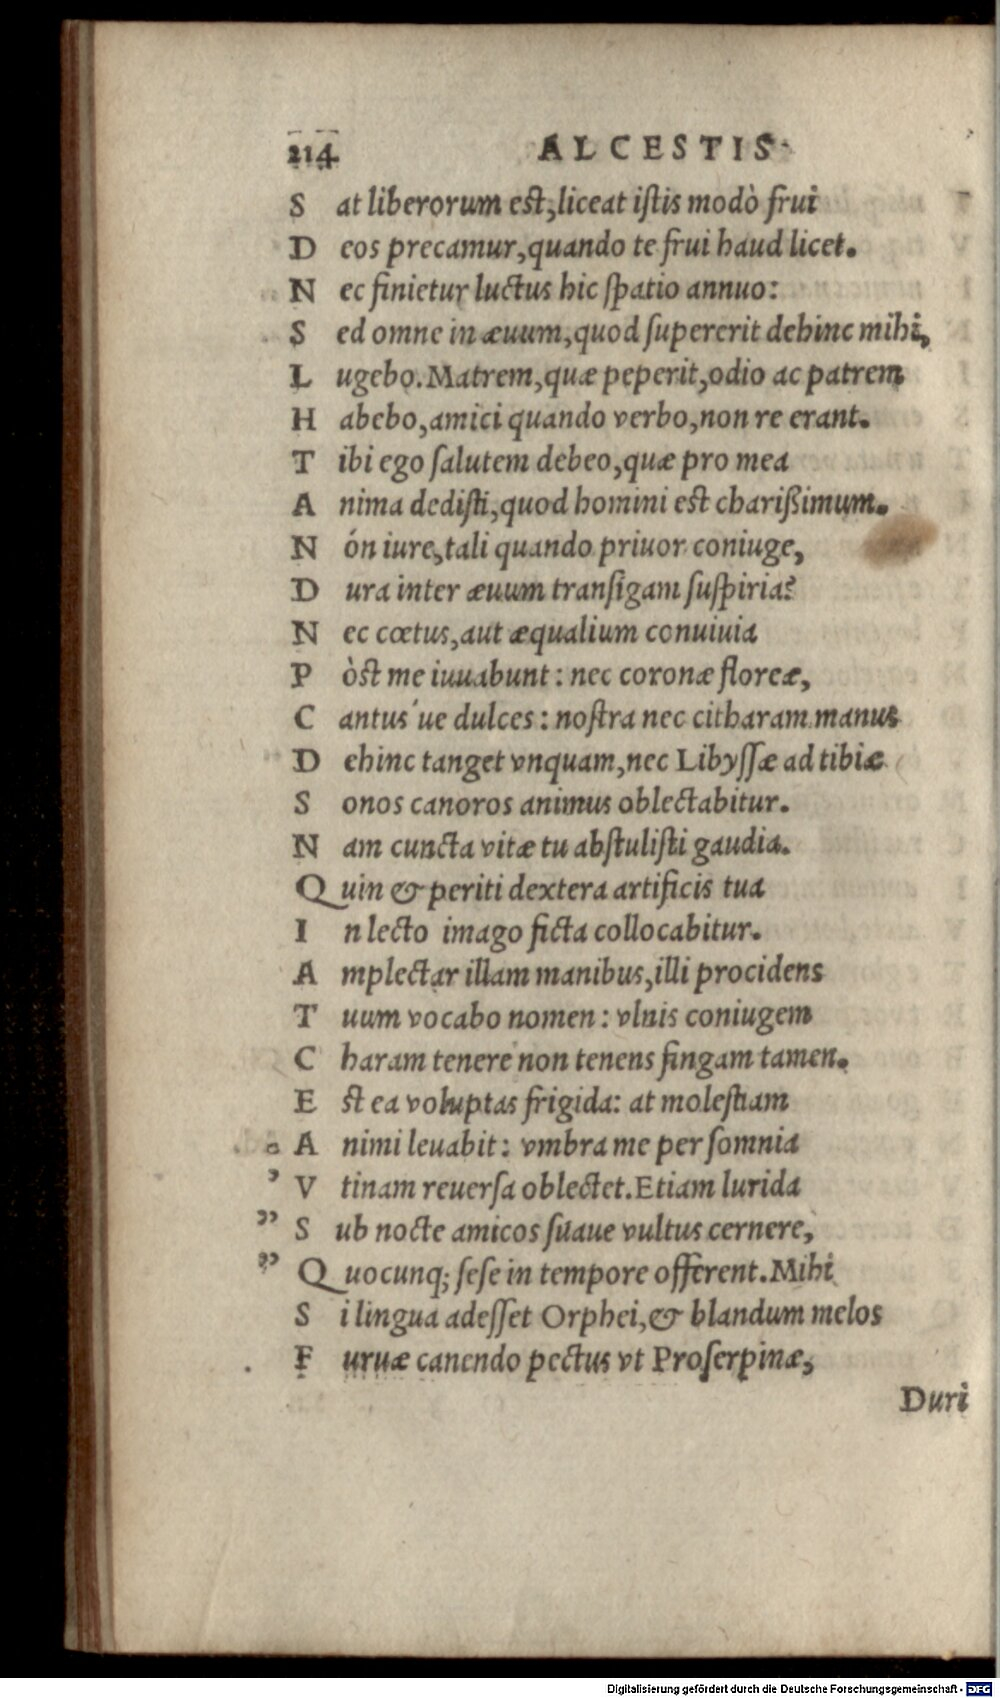 214 ALCESTIS
S at liberorum est, liceat istis modò frui
D eos precamur, quando te frui haud licet.
N ec finietur luctus hic spatio annuo:
S ed omne in æuum, quod supererit dehinc mihi,
L ugebo. Matrem, quæ peperit, odio ac patrem
H abebo, amici quando verbo, non re erant.
T ibi ego salutem debeo, quæ pro mea
A nima dedisti, quod homini est charißimum.
N ón iure, tali quando priuor coniuge,
D ura inter æuum transigam suspiria?
N ec cœtus, aut æqualium conuiuia
P òst me iuuabunt: nec coronæ floreæ,
C antus'ue dulces: nostra nec citharam manus
D ehinc tanget vnquam, nec Libyssæ ad tibiæ
S onos canoros animus oblectabitur.
N am cuncta vitæ tu abstulisti gaudia.
Q uin & periti dextera artificis tua
I n lecto imago ficta collocabitur.
A mplectar illam manibus, illi procidens
T uum vocabo nomen: vlnis coniugem
C haram tenere non tenens fingam tamen.
E st ea voluptas frigida: at molestiam
A nimi leuabit: vmbra me per somnia
” V tinam reuersa oblectet. Etiam lurida
” S ub nocte amicos suaue vultus cernere,
” Q uocunq; sese in tempore offerent. Mihi
S i lingua adesset Orphei, & blandum melos
F uruæ canendo pectus vt Proserpinæ,
Duri
Digitalisierung gefördert durch die Deutsche Forschungsgemeinschaft - DFG